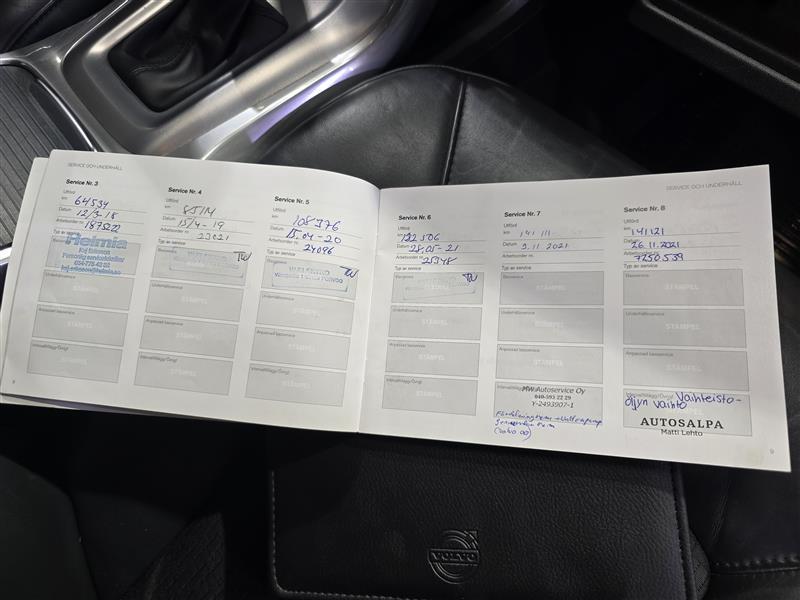 SERVICE OCH UNDERHÅLL
Service Nr. 3
Utförd
km 64534
Datum 12/3-18
Arbetsorder nr. 1875222
Typ av service
Helmia
STÄMPEL
Underhållsservice
STÄMPEL
Anpassad basservice
STÄMPEL
Intervalltillägg/Övrigt
STÄMPEL
8
Service Nr. 4
Utförd
km
Datum 15/4-19
Arbetsorder nr. 23021
Typ av service
Basservice
TW
Underhållsservice
STÄMPEL
Anpassad basservice
STÄMPEL
Intervalltillägg/Övrigt
STÄMPEL
Service Nr. 5
Utförd
km 108776
Datum 15.04-20
Arbetsorder nr. 24096
Typ av service
TW
Underhållsservice
STÄMPEL
Anpassad basservice
STÄMPEL
Intervalltillägg/Övrigt
STÄMPEL
SERVICE OCH UNDERHÅLL
Service Nr. 6
Utförd
km 122506
Datum 28.05-21
Arbetsorder nr. 25348
Typ av service
TW
Underhållsservice
STÄMPEL
Anpassad basservice
STÄMPEL
Intervalltillägg/Övrigt
STÄMPEL
Service Nr. 7
Utförd
km 141 111
Datum 9.11 2021
Arbetsorder nr.
Typ av service
Basservice
STÄMPEL
Underhållsservice
STÄMPEL
Anpassad basservice
STÄMPEL
Intervalltillägg/Övrigt
MW Autoservice Oy
040-593 22 29
Y-2493907-1
Service Nr. 8
Utförd
km 141121
Datum 26.11.2021
Arbetsorder nr. 7250539
Typ av service
Basservice
STÄMPEL
Underhållsservice
STÄMPEL
Anpassad basservice
STÄMPEL
Intervalltillägg/Övrigt Vaihteisto-
öljyn vaihto
AUTOSALPA
Matti Lehto
9
VOLVO